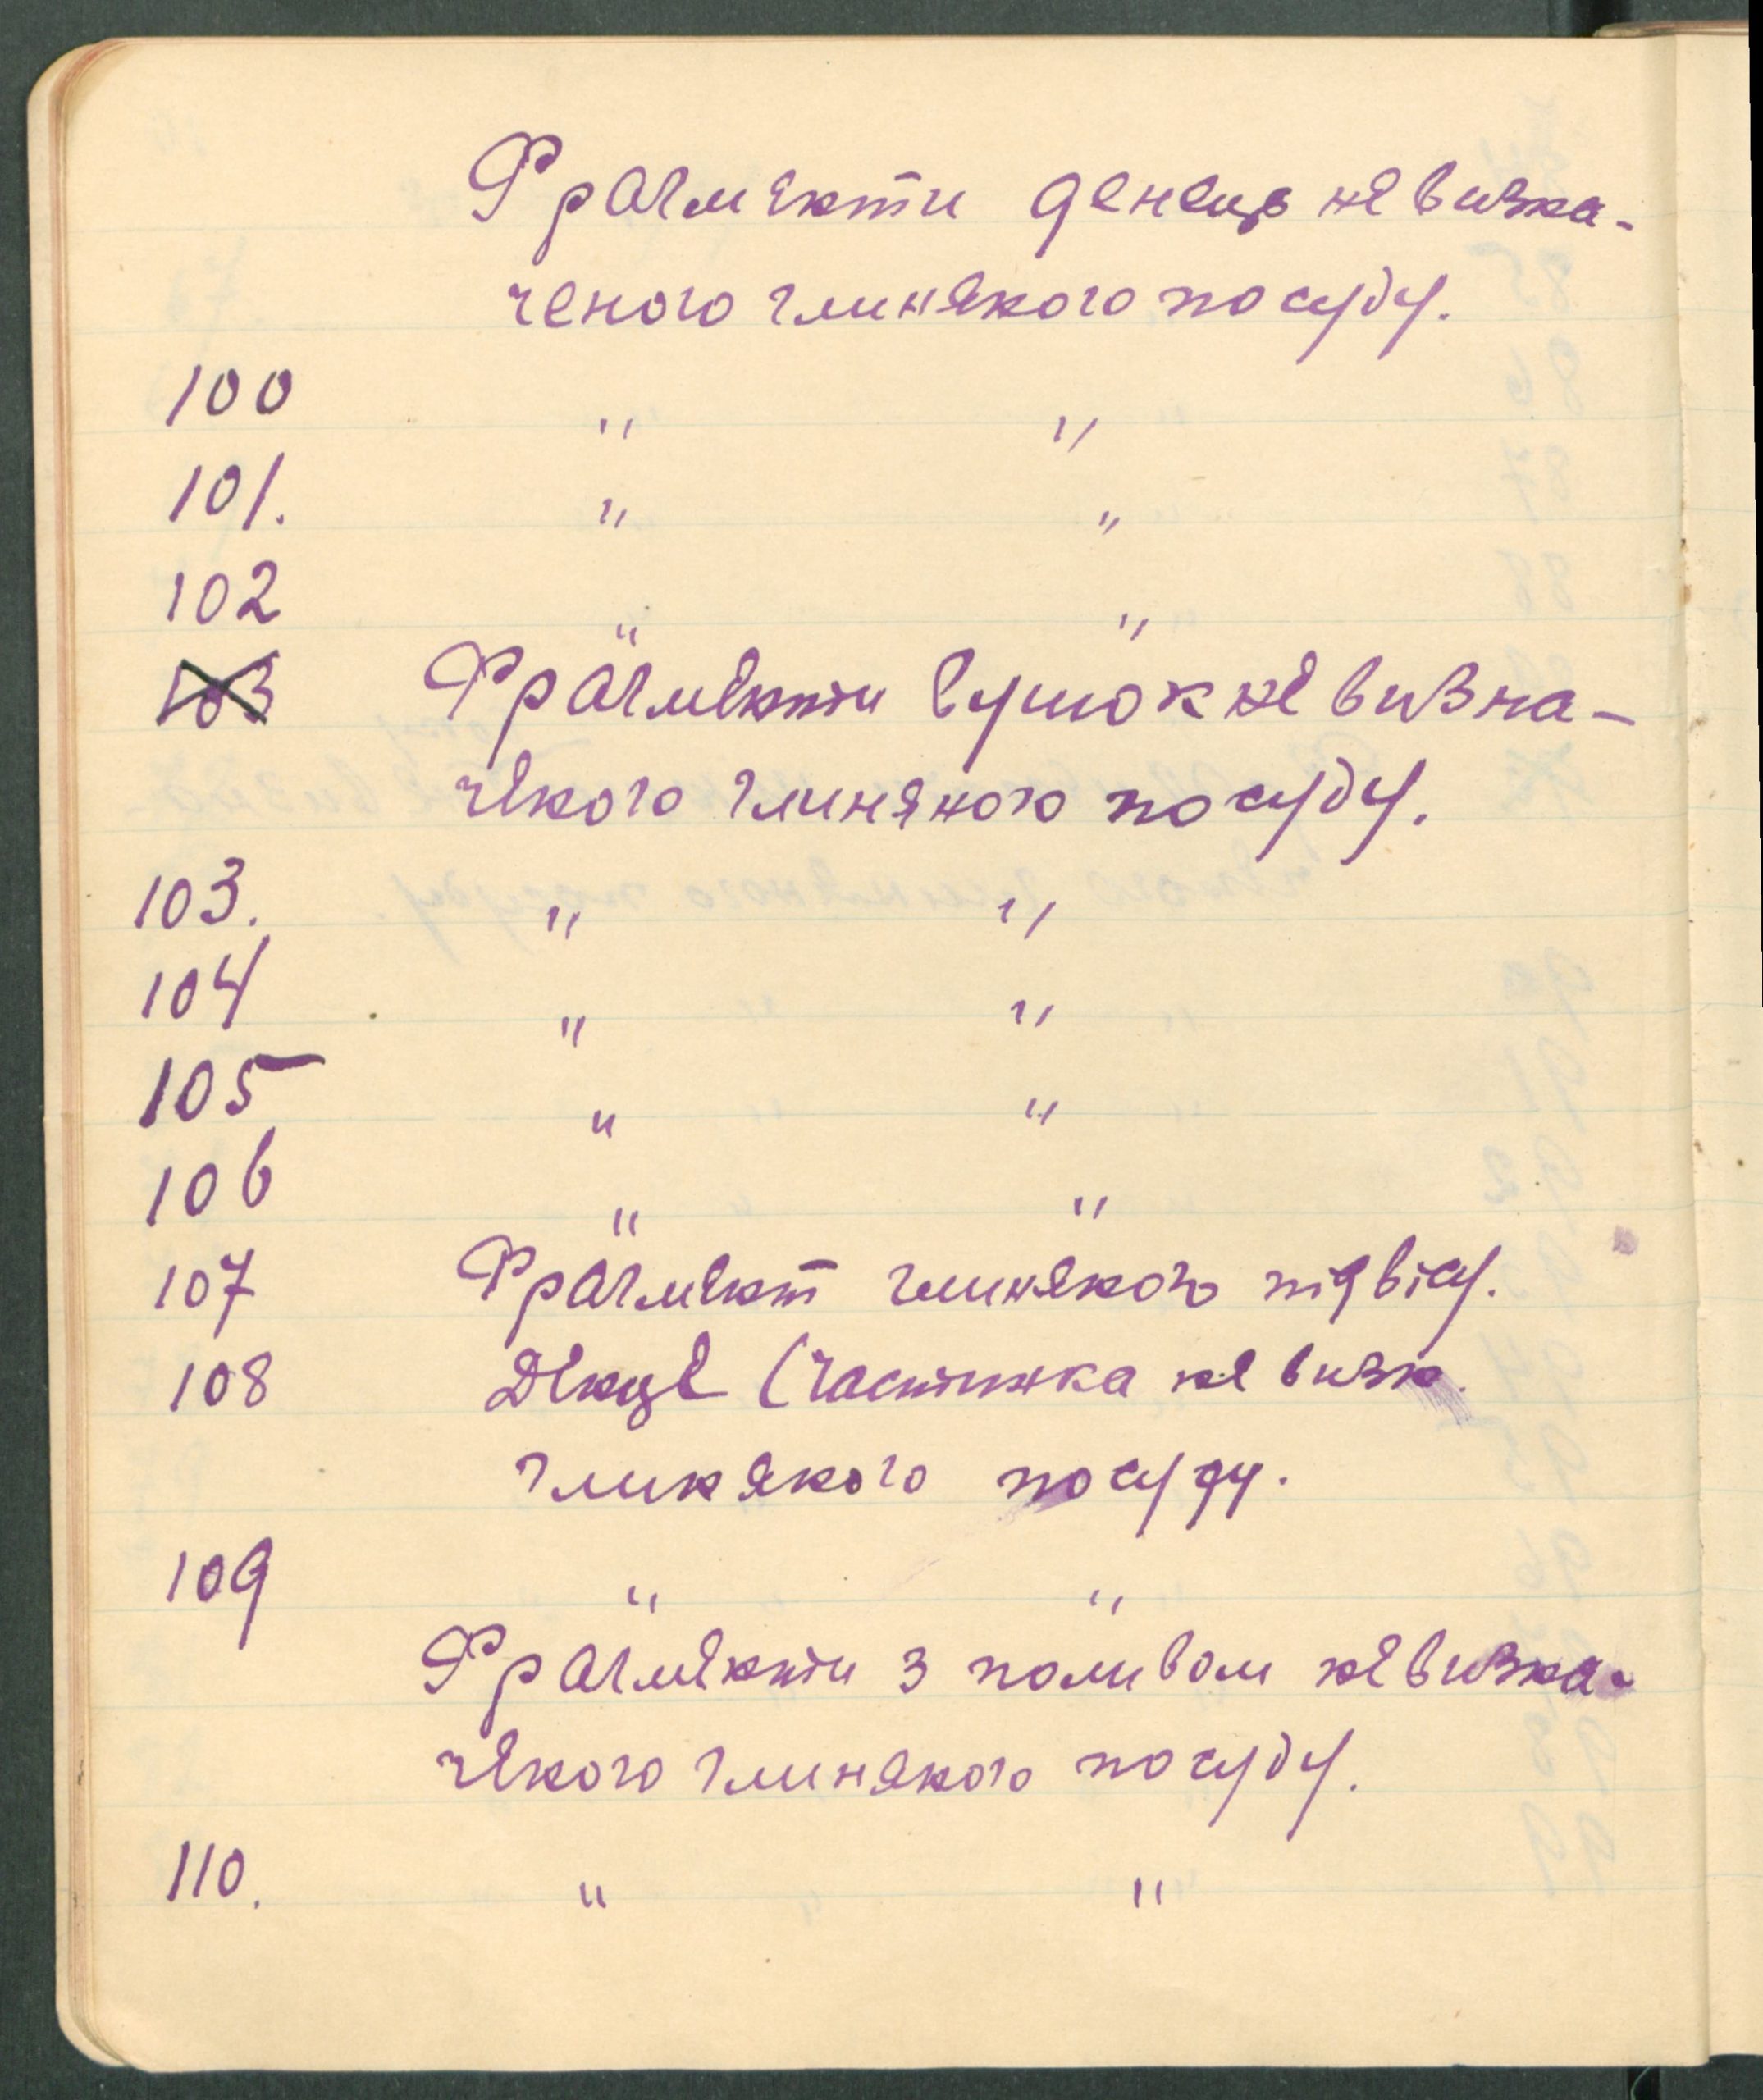 Фрагменти денець невизна-
ченого глиняного посуду.
100 " "
101. " "
102 " "
103 Фрагменти вушок невизна-
ченого глиняного посуду.
103. " "
104 " "
105 " "
106 " "
107 Фрагмент глиняного підвісу.
108 Денце (частинка не визн.
глиняного посуду.
109 " "
Фрагменти з поливом невизна-
ченого глиняного посуду.
110. " "